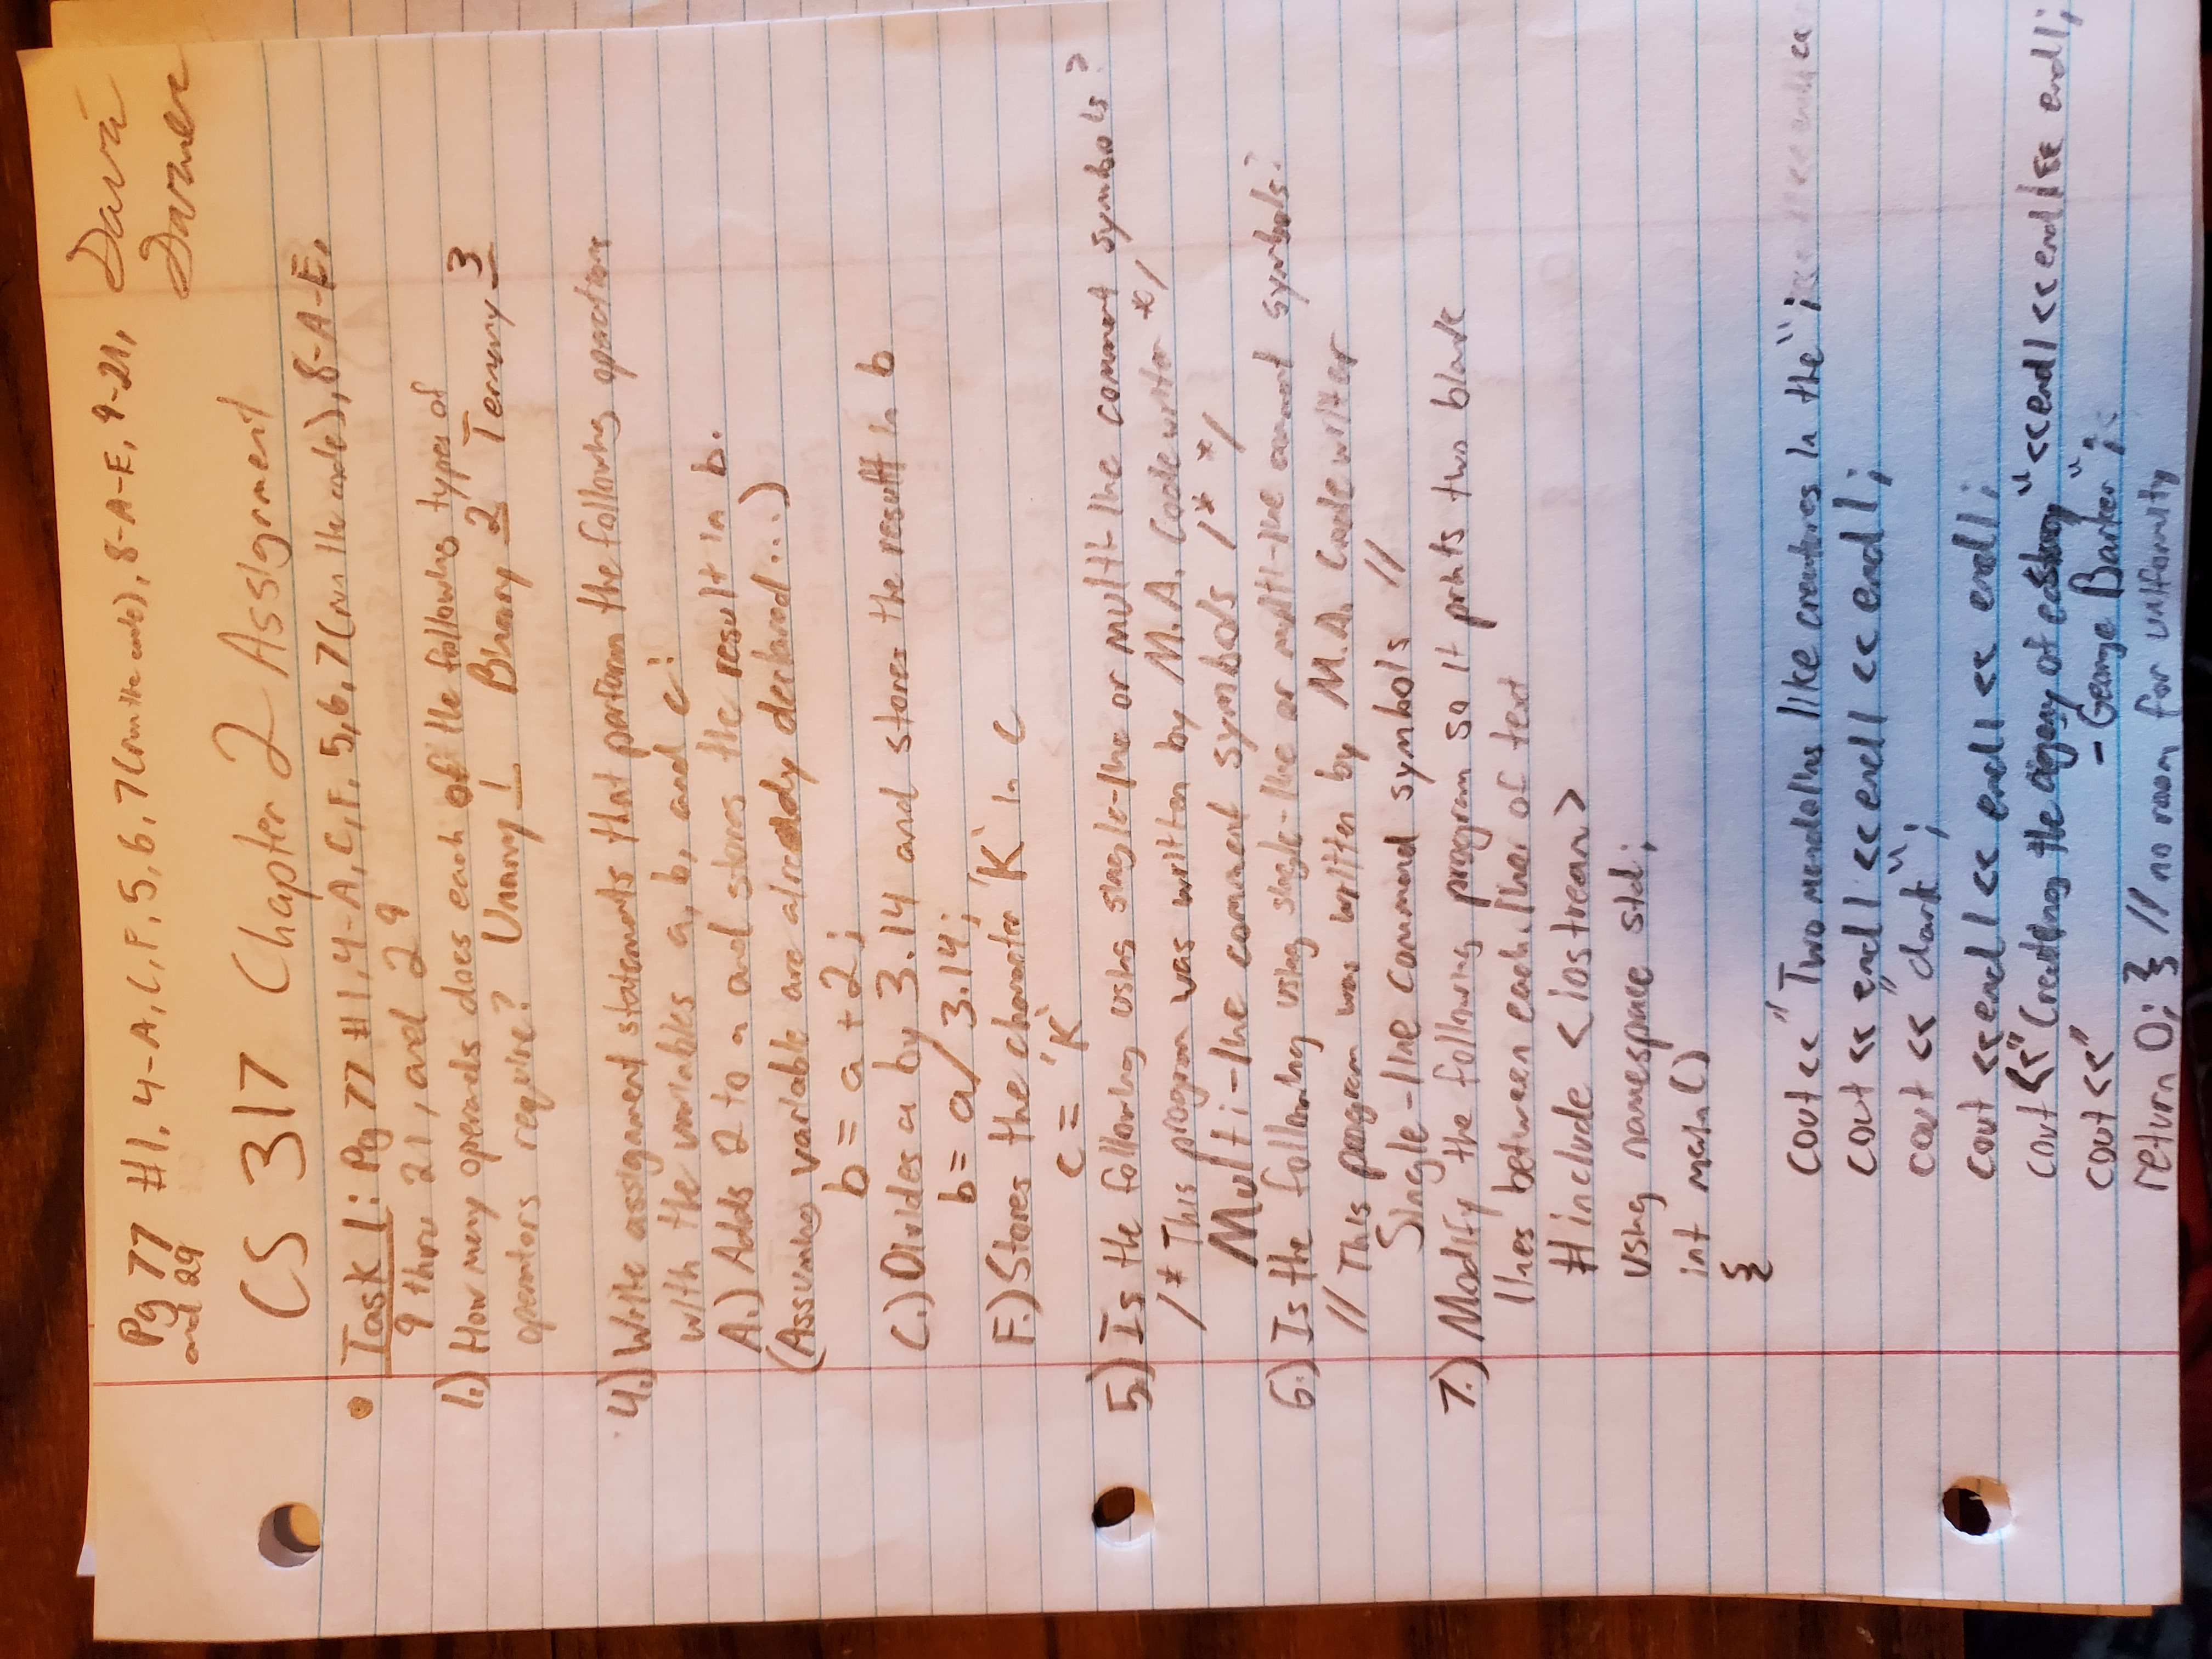 Pg 77 #1, 4-A, C, F, 5, 6, 7 (run the code), 8-A-E, 9-21,
and 29
CS 317 Chapter 2 Assignment
Task 1: Pg 77 #1, 4-A, C, F, 5, 6, 7 (run the code), 8-A-E,
9 thru 21, and 29
1.) How many operands does each of the following types of
operators require? Unary 1 Binary 2 Ternary 3
4.) Write assignment statements that perform the following operations
with the variables a, b, and c:
A.) Adds 2 to a and stores the result in b.
(Assuming variable are already declared...)
b = a + 2;
C.) Divides a by 3.14 and stores the result in b
b = a / 3.14;
F.) Stores the character 'K' in c
c = 'K'
5.) Is the following using single-line or multi-line comment symbols?
/* This program was written by M.A. Codewriter */
Multi-line comment symbols /* */
6.) Is the following using single-line or multi-line comment symbols?
// This program was written by M.A. Codewriter
Single-line command symbols //
7.) Modify the following program so it prints two blank
lines between each line of text
#include <iostream>
using namespace std;
int main()
{
cout << "Two mandolins like creatures in the";
cout << endl << endl << endl;
cout << "dark";
cout << endl << endl << endl;
cout << "Creating the agony of ecstasy" << endl << endl << endl;
cout << " - George Barker";
return 0; } // no room for uniformity